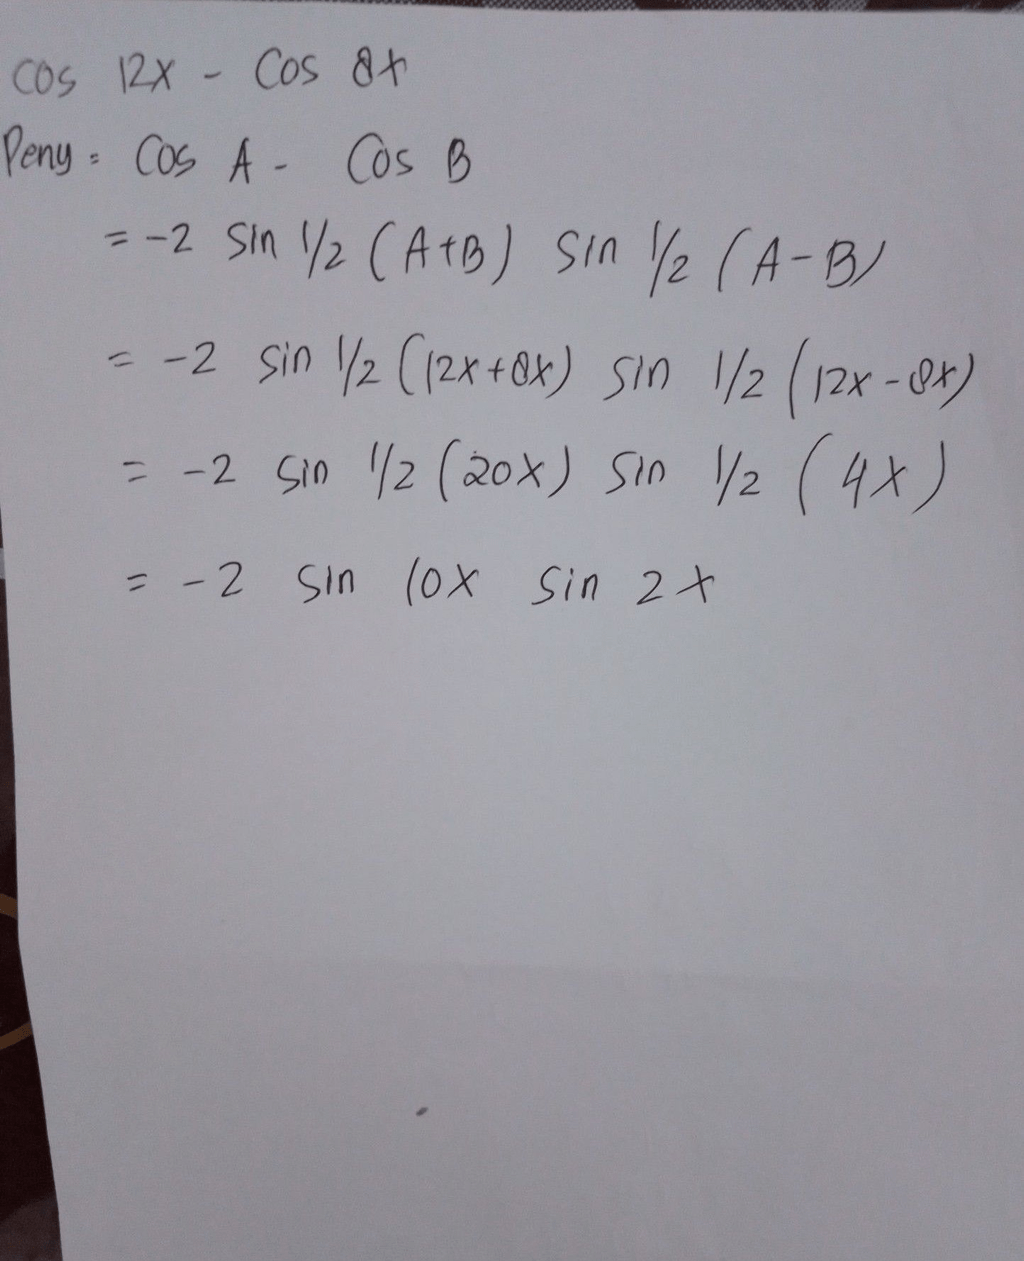 cos 12x - Cos 8x
Peny = Cos A - Cos B
= -2 sin 1/2 (A+B) sin 1/2 (A-B)
= -2 sin 1/2 (12x+8x) sin 1/2 (12x-8x)
= -2 sin 1/2 (20x) sin 1/2 (4x)
= -2 sin 10x sin 2x